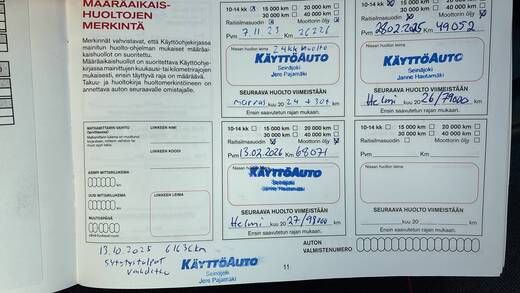 MÄÄRÄAIKAIS-
HUOLTOJEN
MERKINTÄ
Merkinnät vahvistavat, että Käyttöohjekirjassa
mainitun huolto-ohjelman mukaiset määräaikais-
huollot on suoritettu.
Määräaikaishuollot on suoritettava Käyttöohjekir-
jassa mainittujen kuukausi- tai kilometrirajojen
mukaisesti, ensin täyttyvä raja on määräävä.
Takuu- ja huoltokirja huoltomerkintöineen on
annettava auton seuraavalle omistajalle.
MATKAMITTARIN VAIHTO
LIIKKEEN NIMI
LIIKKEEN KOODI
AIEMPI MITTARILUKEMA
km
UUSI MITTARILUKEMA
LIIKKEEN LEIMA
km
MUUTOSPÄIVÄ
10-14 kk
15 000 km
20 000 km
30 000 km
40 000 km
Raitisilmasuodin
Moottorin öljy
Pvm 7.11.23 Km 26226
Nissan huollon leima
24kk huolto
KÄYTTÖAUTO
Seinäjoki
Jere Pajamäki
SEURAAVA HUOLTO VIIMEISTÄÄN
marras kuu 20 24 + 30t km
Ensin saavutetun rajan mukaan.
10-14 kk
15 000 km
20 000 km
30 000 km
40 000 km
Raitisilmasuodin
Moottorin öljy
Pvm 28.02.2025 Km 49052
Nissan huollon leima
KÄYTTÖAUTO
Seinäjoki
Janne Hautamäki
SEURAAVA HUOLTO VIIMEISTÄÄN
Helmi kuu 20 26/79000 km
Ensin saavutetun rajan mukaan.
10-14 kk
15 000 km
20 000 km
30 000 km
40 000 km
Raitisilmasuodin
Moottorin öljy
Pvm 13.02.2026 Km 68071
KÄYTTÖAUTO
Seinäjoki
Janne Hautamäki
SEURAAVA HUOLTO VIIMEISTÄÄN
Helmi kuu 20 27/98000 km
Ensin saavutetun rajan mukaan.
10-14 kk
15 000 km
20 000 km
30 000 km
40 000 km
Raitisilmasuodin
Moottorin öljy
Pvm Km
Nissan huollon leima
SEURAAVA HUOLTO VIIMEISTÄÄN
kuu 20 km
Ensin saavutetun rajan mukaan.
13.10.2025 61636km
Sytytystulpat
vaihdettu
KÄYTTÖAUTO
Seinäjoki
Jere Pajamäki
11
AUTON
VALMISTENUMERO